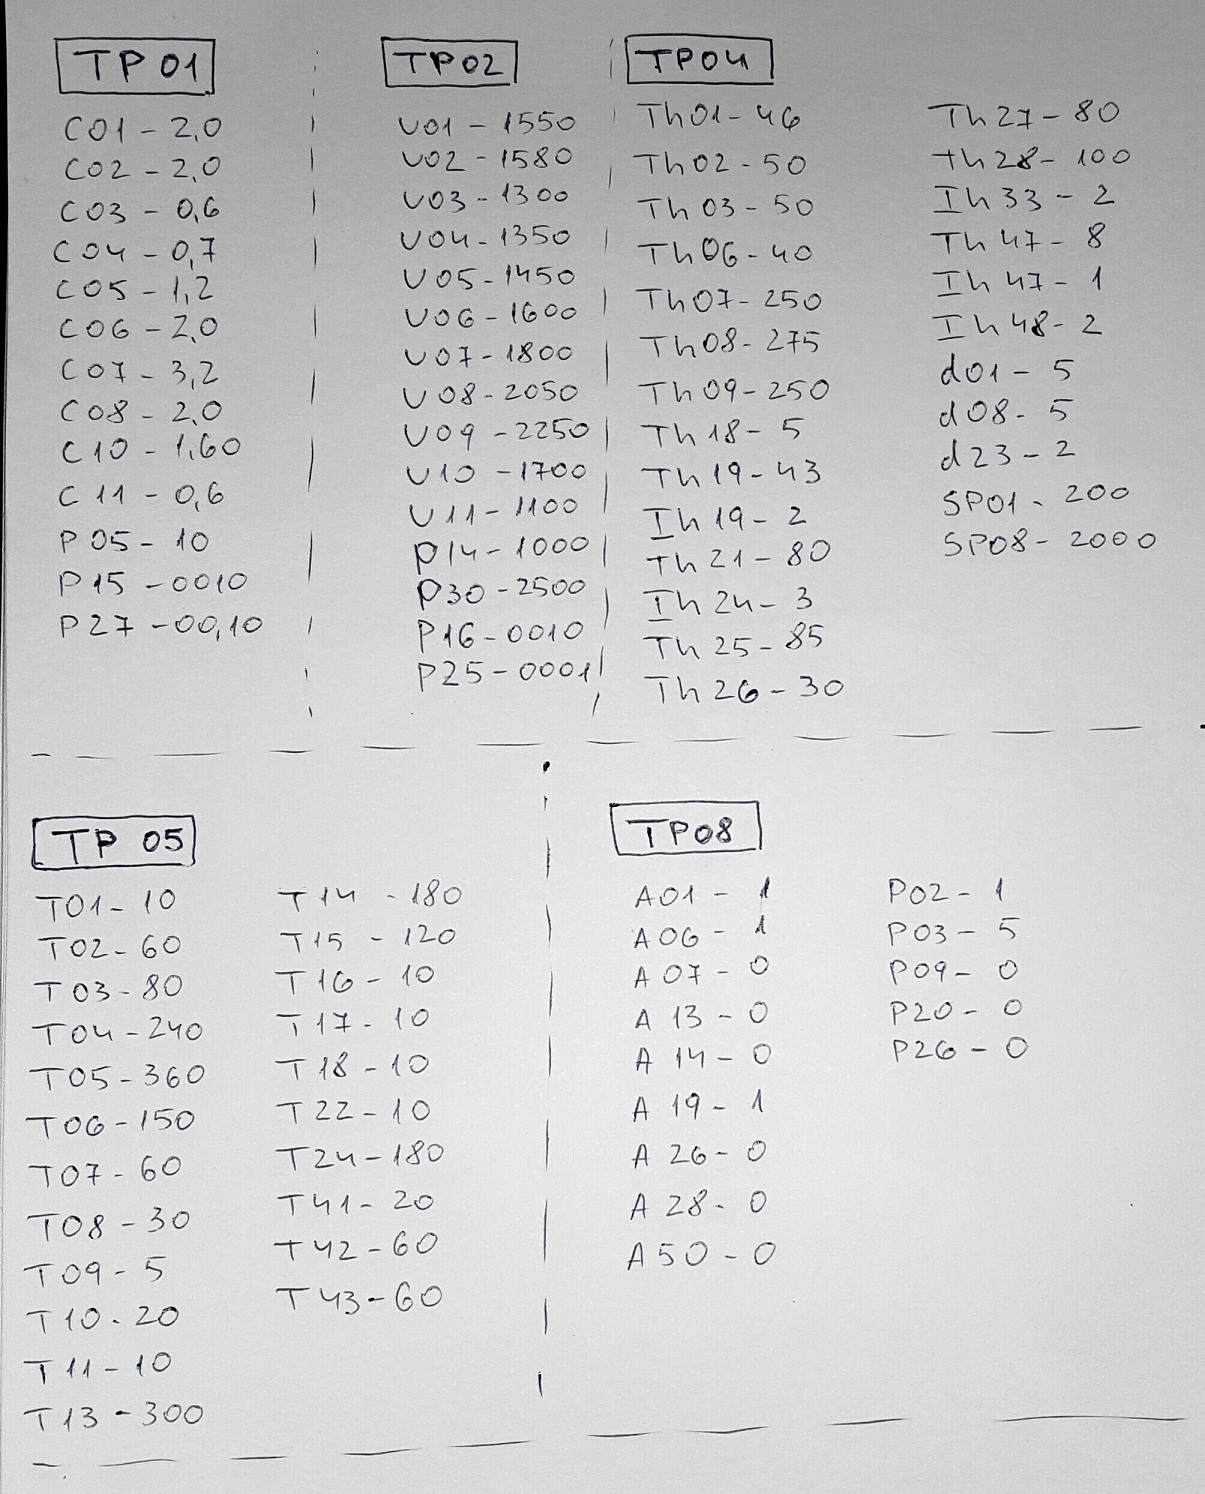 TP 01
C01 - 2,0
C02 - 2,0
C03 - 0,6
C04 - 0,7
C05 - 1,2
C06 - 2,0
C07 - 3,2
C08 - 2,0
C10 - 1,60
C11 - 0,6
P05 - 10
P15 - 0010
P27 - 00,10
TP02
U01 - 1550
U02 - 1580
U03 - 1300
U04 - 1350
U05 - 1450
U06 - 1600
U07 - 1800
U08 - 2050
U09 - 2250
U10 - 1700
U11 - 1100
P14 - 1000
P30 - 2500
P16 - 0010
P25 - 0001
TP04
Th01 - 46
Th02 - 50
Th03 - 50
Th06 - 40
Th07 - 250
Th08 - 275
Th09 - 250
Th18 - 5
Th19 - 43
Ih19 - 2
Th21 - 80
Ih24 - 3
Th25 - 85
Th26 - 30
Th27 - 80
th28 - 100
Ih33 - 2
Th47 - 8
Ih47 - 1
Ih48 - 2
d01 - 5
d08 - 5
d23 - 2
SP01 - 200
SP08 - 2000
TP 05
T01 - 10
T02 - 60
T03 - 80
T04 - 240
T05 - 360
T06 - 150
T07 - 60
T08 - 30
T09 - 5
T10 - 20
T11 - 10
T13 - 300
T14 - 180
T15 - 120
T16 - 10
T17 - 10
T18 - 10
T22 - 10
T24 - 180
T41 - 20
T42 - 60
T43 - 60
TP08
A01 - 1
A06 - 1
A07 - 0
A13 - 0
A14 - 0
A19 - 1
A26 - 0
A28 - 0
A50 - 0
P02 - 1
P03 - 5
P09 - 0
P20 - 0
P26 - 0